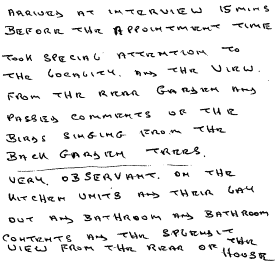 ARRIVED AT INTERVIEW 15 MINS
BEFORE THE APPOINTMENT TIME
TOOK SPECIAL ATTENTION TO
THE LOCALITY. AND THE VIEW.
FROM THE REAR GARDEN AND
PASSED COMMENTS OF THE
BIRDS SINGING FROM THE
BACK GARDEN TREES.
VERY. OBSERVANT. ON THE
KITCHEN UNITS AND THEIR LAY
OUT AND BATHROOM AND BATHROOM
CONTENTS AND THE SPLENDIT
VIEW FROM THE REAR OF THE
HOUSE